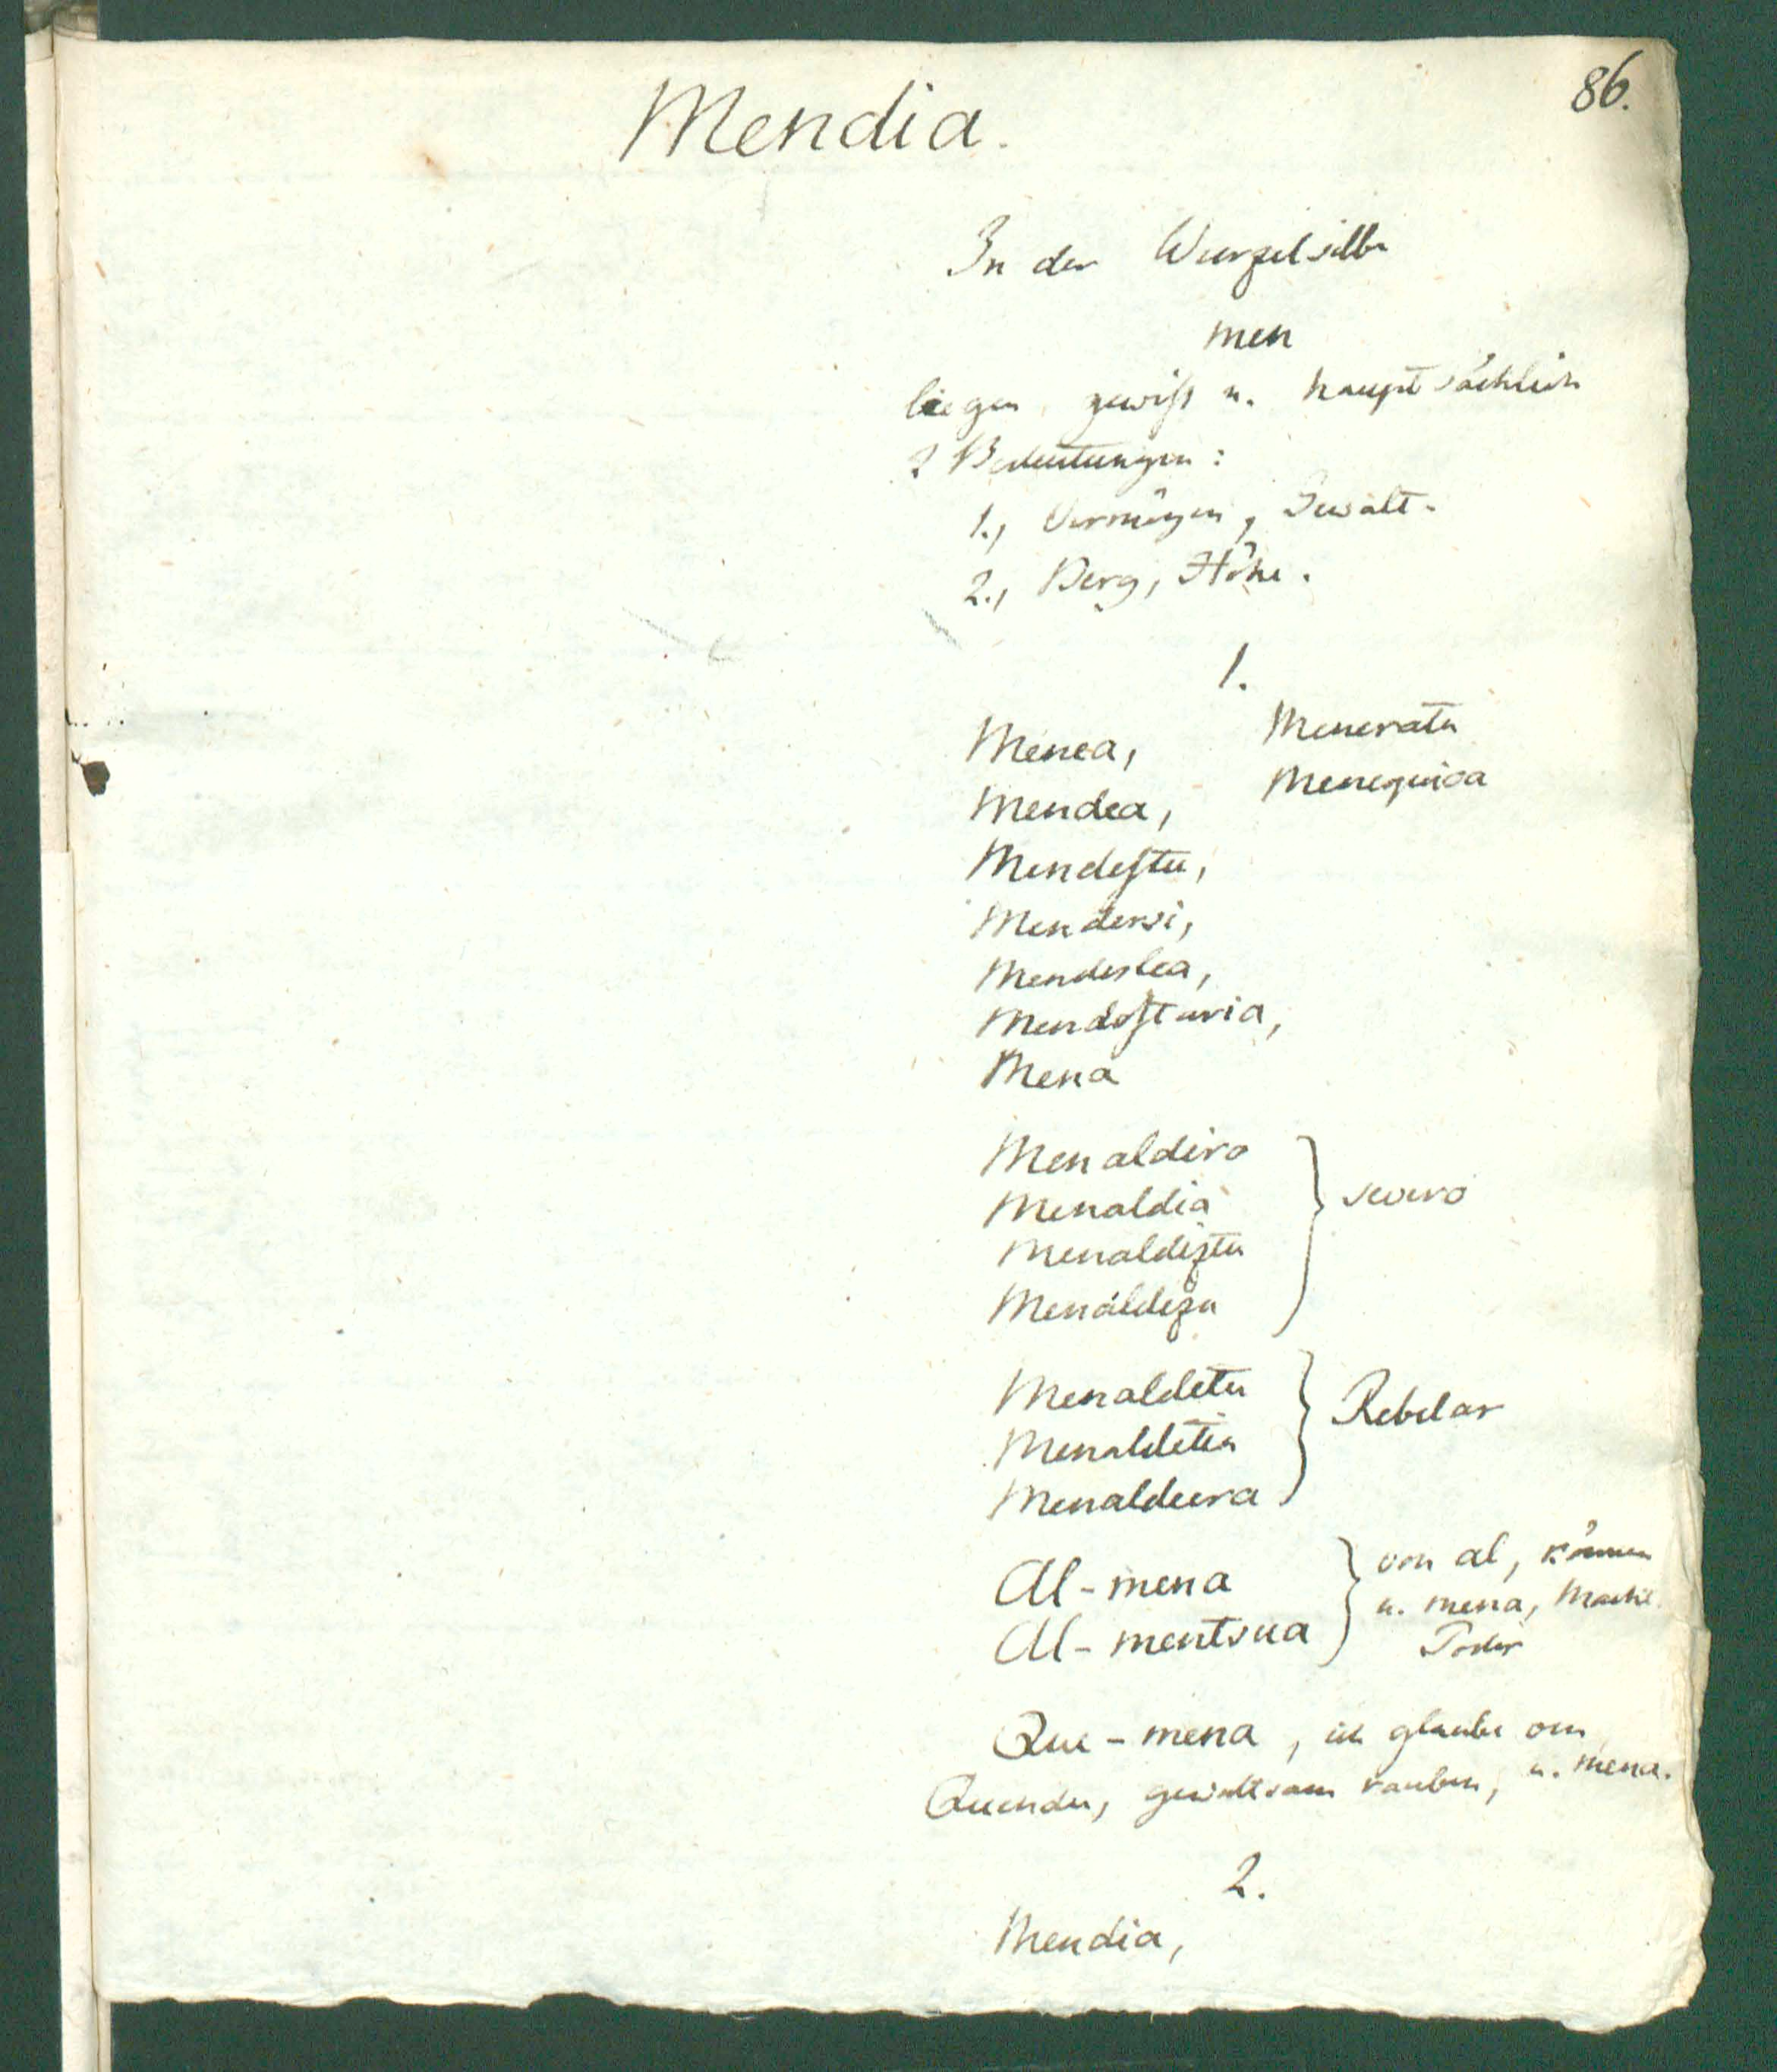 86.
Mendia.
In der Wurzelsilbe
men
liegen gewiß u. hauptsächlich
2 Bedeutungen:
1., Vermögen, Gewalt.
2., Berg, Höhe.
1.
Menea, Meneratu
Mendea, Menequioa
Mendeſtu,
Mendersi,
Mendeslea,
Mendeſturia,
Mena
Menaldiro
Menaldia
Menaldiztu
Menaldizu
severo
Menaldetu
Menaldetia
Menaldeera
Rebelar
Al-mena
Al-mentsua
von al, können
u. mena, Macht.
Poder
Que-mena, ich glaube von
Quendu, gewaltsam rauben, u. mena.
2.
Mendia,